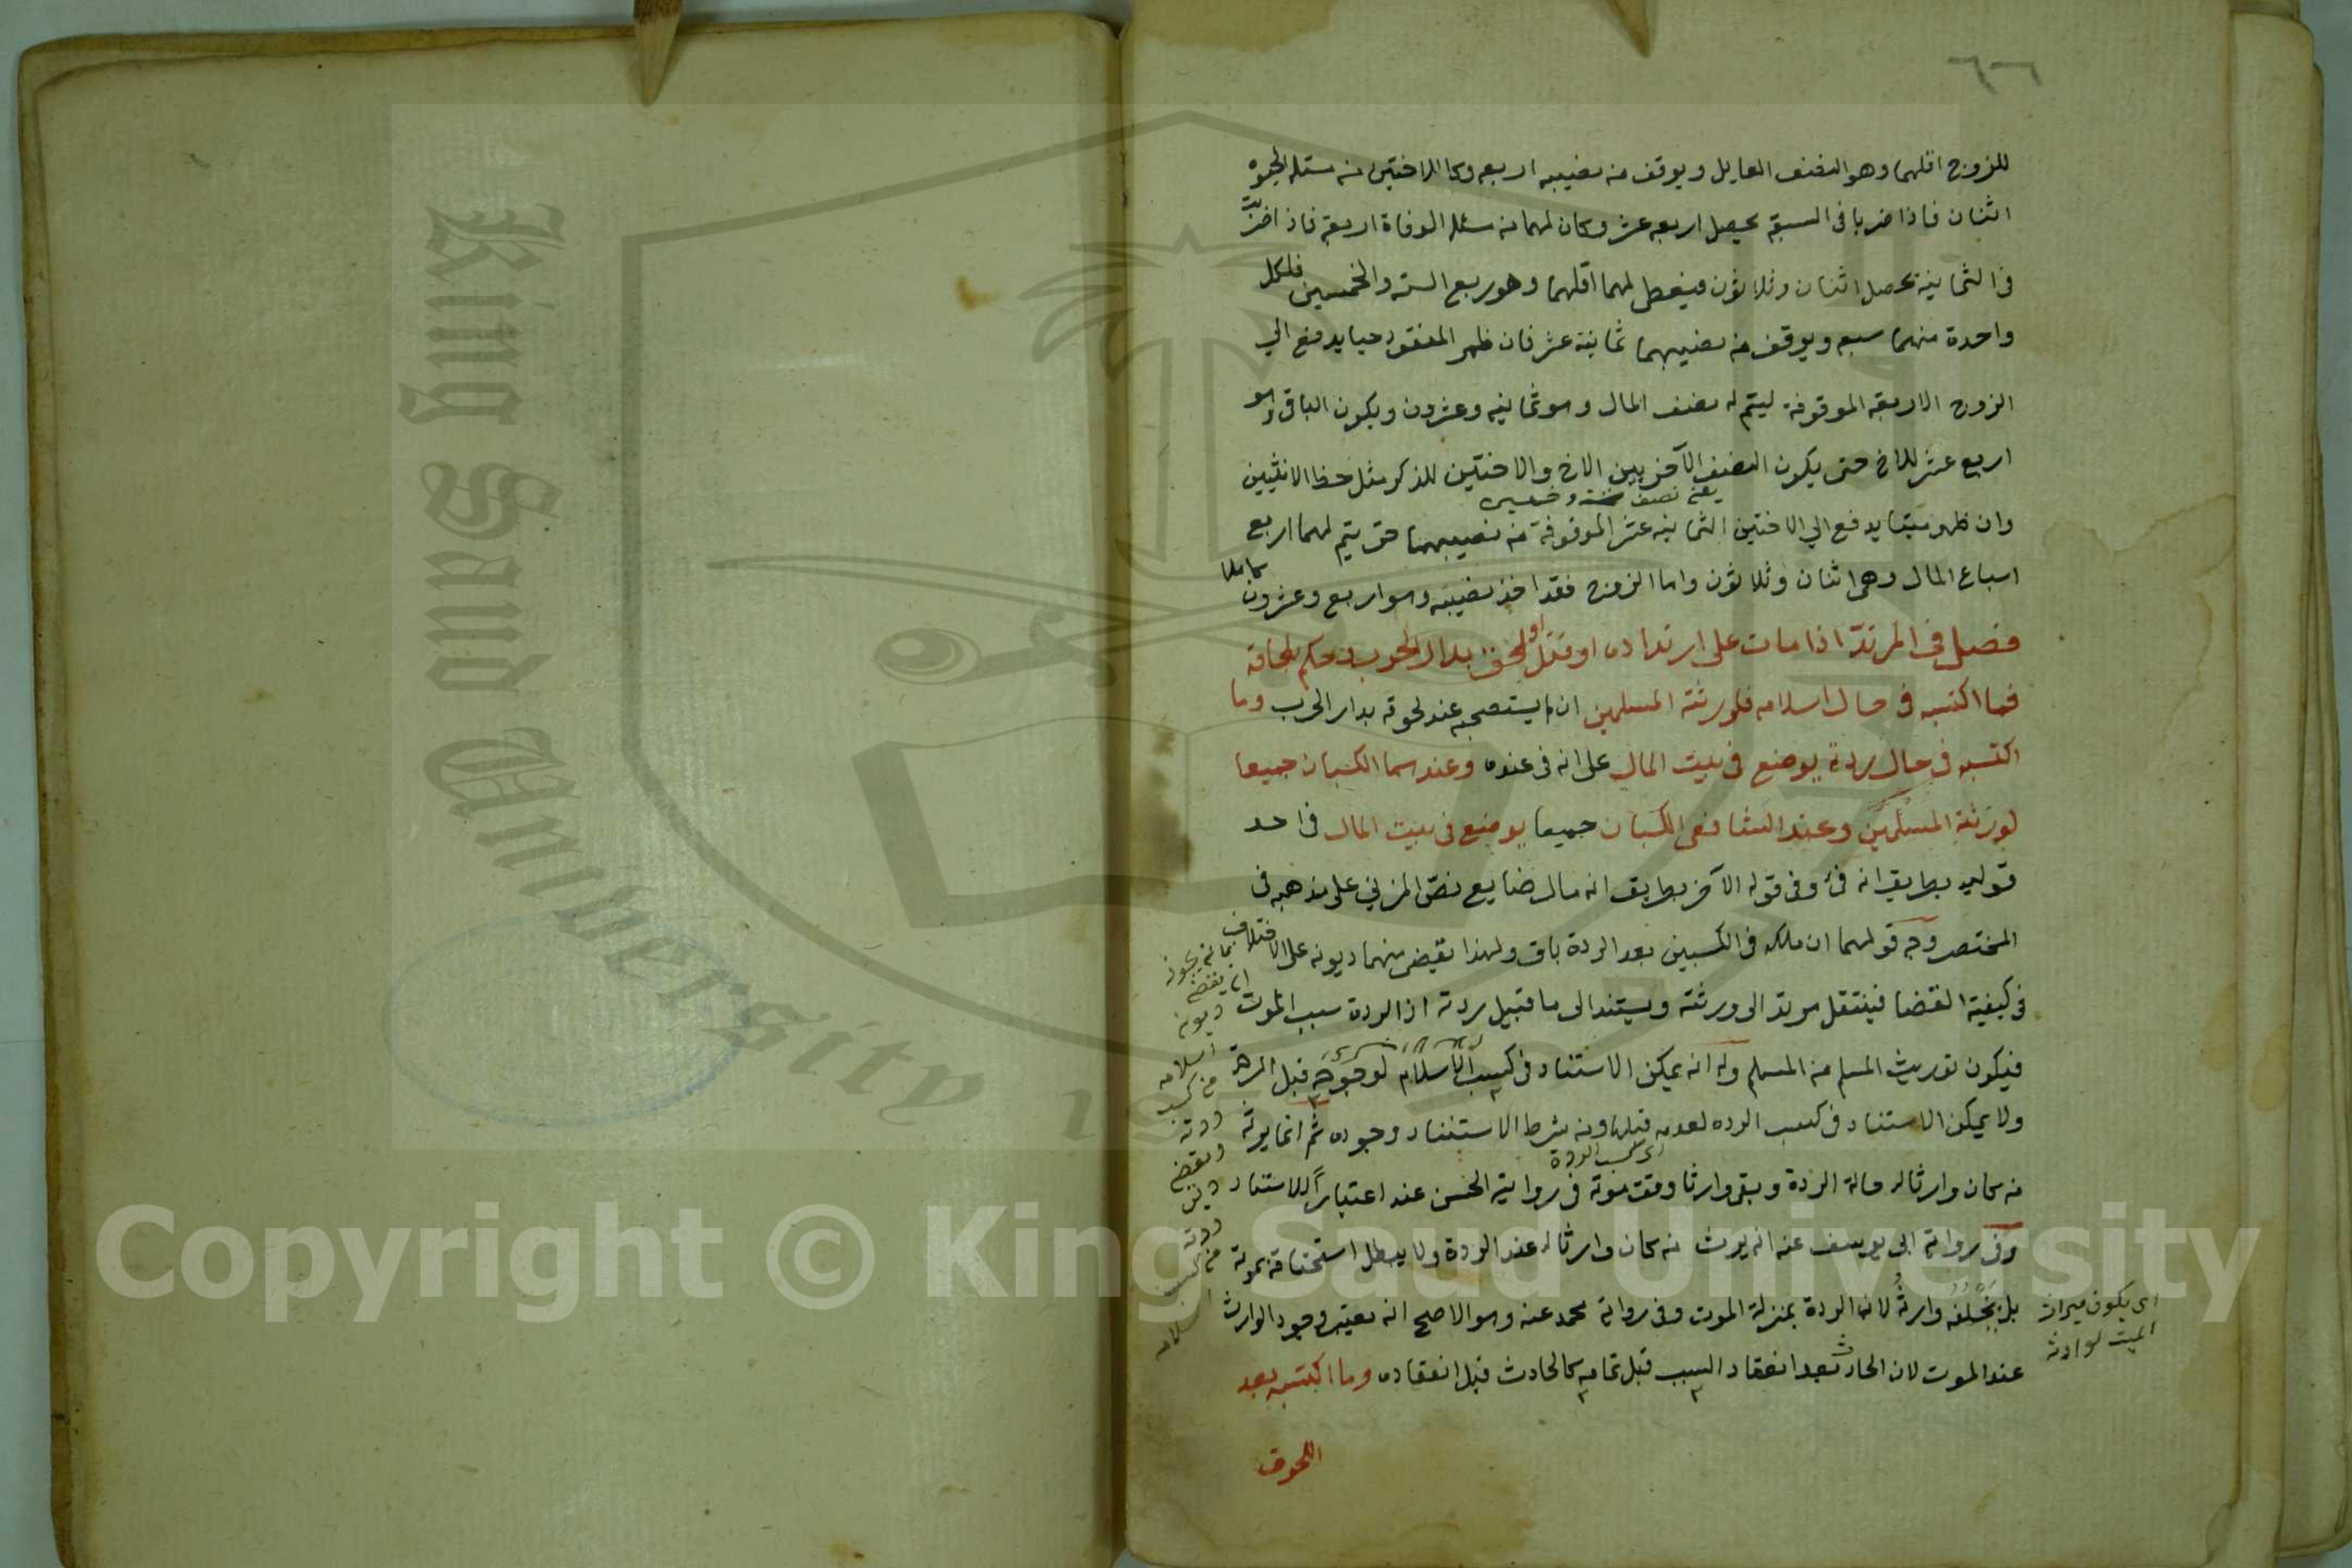 ٦٦
للزوج اقلهما وهو النصف العايل ويوقف من نصيبه اربعه وكا للاختين من مسئله الحيوة
اثنان فاذا ضربا فى السبعة يحصل اربعه عشر وكان لهما من مسئله الوفاة اربعة فاذا ضربت
فى الثمانية يحصل اثنان وثلاثون فيعطى لهما اقلهما وهو ربع الستة والخمسين فلكل
واحدة منهما سبع ويوقف من نصيبهما ثمانية عشر فان ظهر المفقود حيا يدفع الي
الزوج الاربعة الموقوفة ليتم له نصف المال وهو ثمانيه وعشرون ويكون الباقى وهو
اربع عشر للاخ حتى يكون النصف الآخر بين الاخ والاختين للذكر مثل حظ الانثيين
يعنى نصف ستة وخمسين
وان ظهر ميتا يدفع الي الاختين الثمانيه عشر الموقوفة من نصيبهما حتى يتم لهما اربع
اسباع المال وهى اثنان وثلاثون واما الزوج فقد اخذ نصيبه وهو اربع وعشرون كاملا
فصل فى المرتدّ اذا مات على ارتداده او قتل او لحق بدار الحرب وحكم بلحاقه
فما اكتسبه فى حال اسلامه فلورثته المسلمين ان لم يستصحبه عند لحوقه بدار الحرب وما
اكتسبه فى حال ردته يوضع فى بيت المال على انه فئ عنده وعندهما الكسبان جميعا
لورثته المسلمين وعند الشافعى الكسبان جميعا يوضع فى بيت المال فى احد
قوليه بطريق انه فئ وفى قوله الآخر بطريق انه مال ضايع نصّ المزني على مذهبه فى
المختصر وجه قولهما ان ملكه فى الكسبين بعد الردة باق ولهذا تقضى منهما ديونه على الاختلاف
فى كيفية القضا فينتقل بموته الى ورثته ويستند الى ما قبيل ردته اذ الردة سبب الموت
فيكون توريث المسلم من المسلم وله انه يمكن الاستناد فى كسب الاسلام لوجوده قبل الردة
ولا يمكن الاستناد فى كسب الرده لعدمه قبلها ومن شرط الاستناد وجوده ثم انما يرثه
اى كسب الردة
من كان وارثا له حالة الردة وبقى وارثا وقت موته فى رواية الحسن عنه اعتباراً للاستناد
وفى رواية ابى يوسف عنه انه يرث من كان وارثا له عند الردة ولا يبطل استحقاقه بموته
بل يخلفه وارثه لان الردة بمنزلة الموت وفى رواية محمد عنه وهو الاصح انه يعتبر وجود الوارث
عند الموت لان الحادث بعد انعقاد السبب قبل تمامه كالحادث قبل انعقاده وما اكتسبه بعد
اللحوق
بمانه يجوز
ان يقضى
ديونه
اسلامه
من كسب
ردته
ويقضى
دين
ردته
من كسب
اسلامه
اى يكون ميراث
الميت لوارثه
King Saud University
Copyright © King Saud University